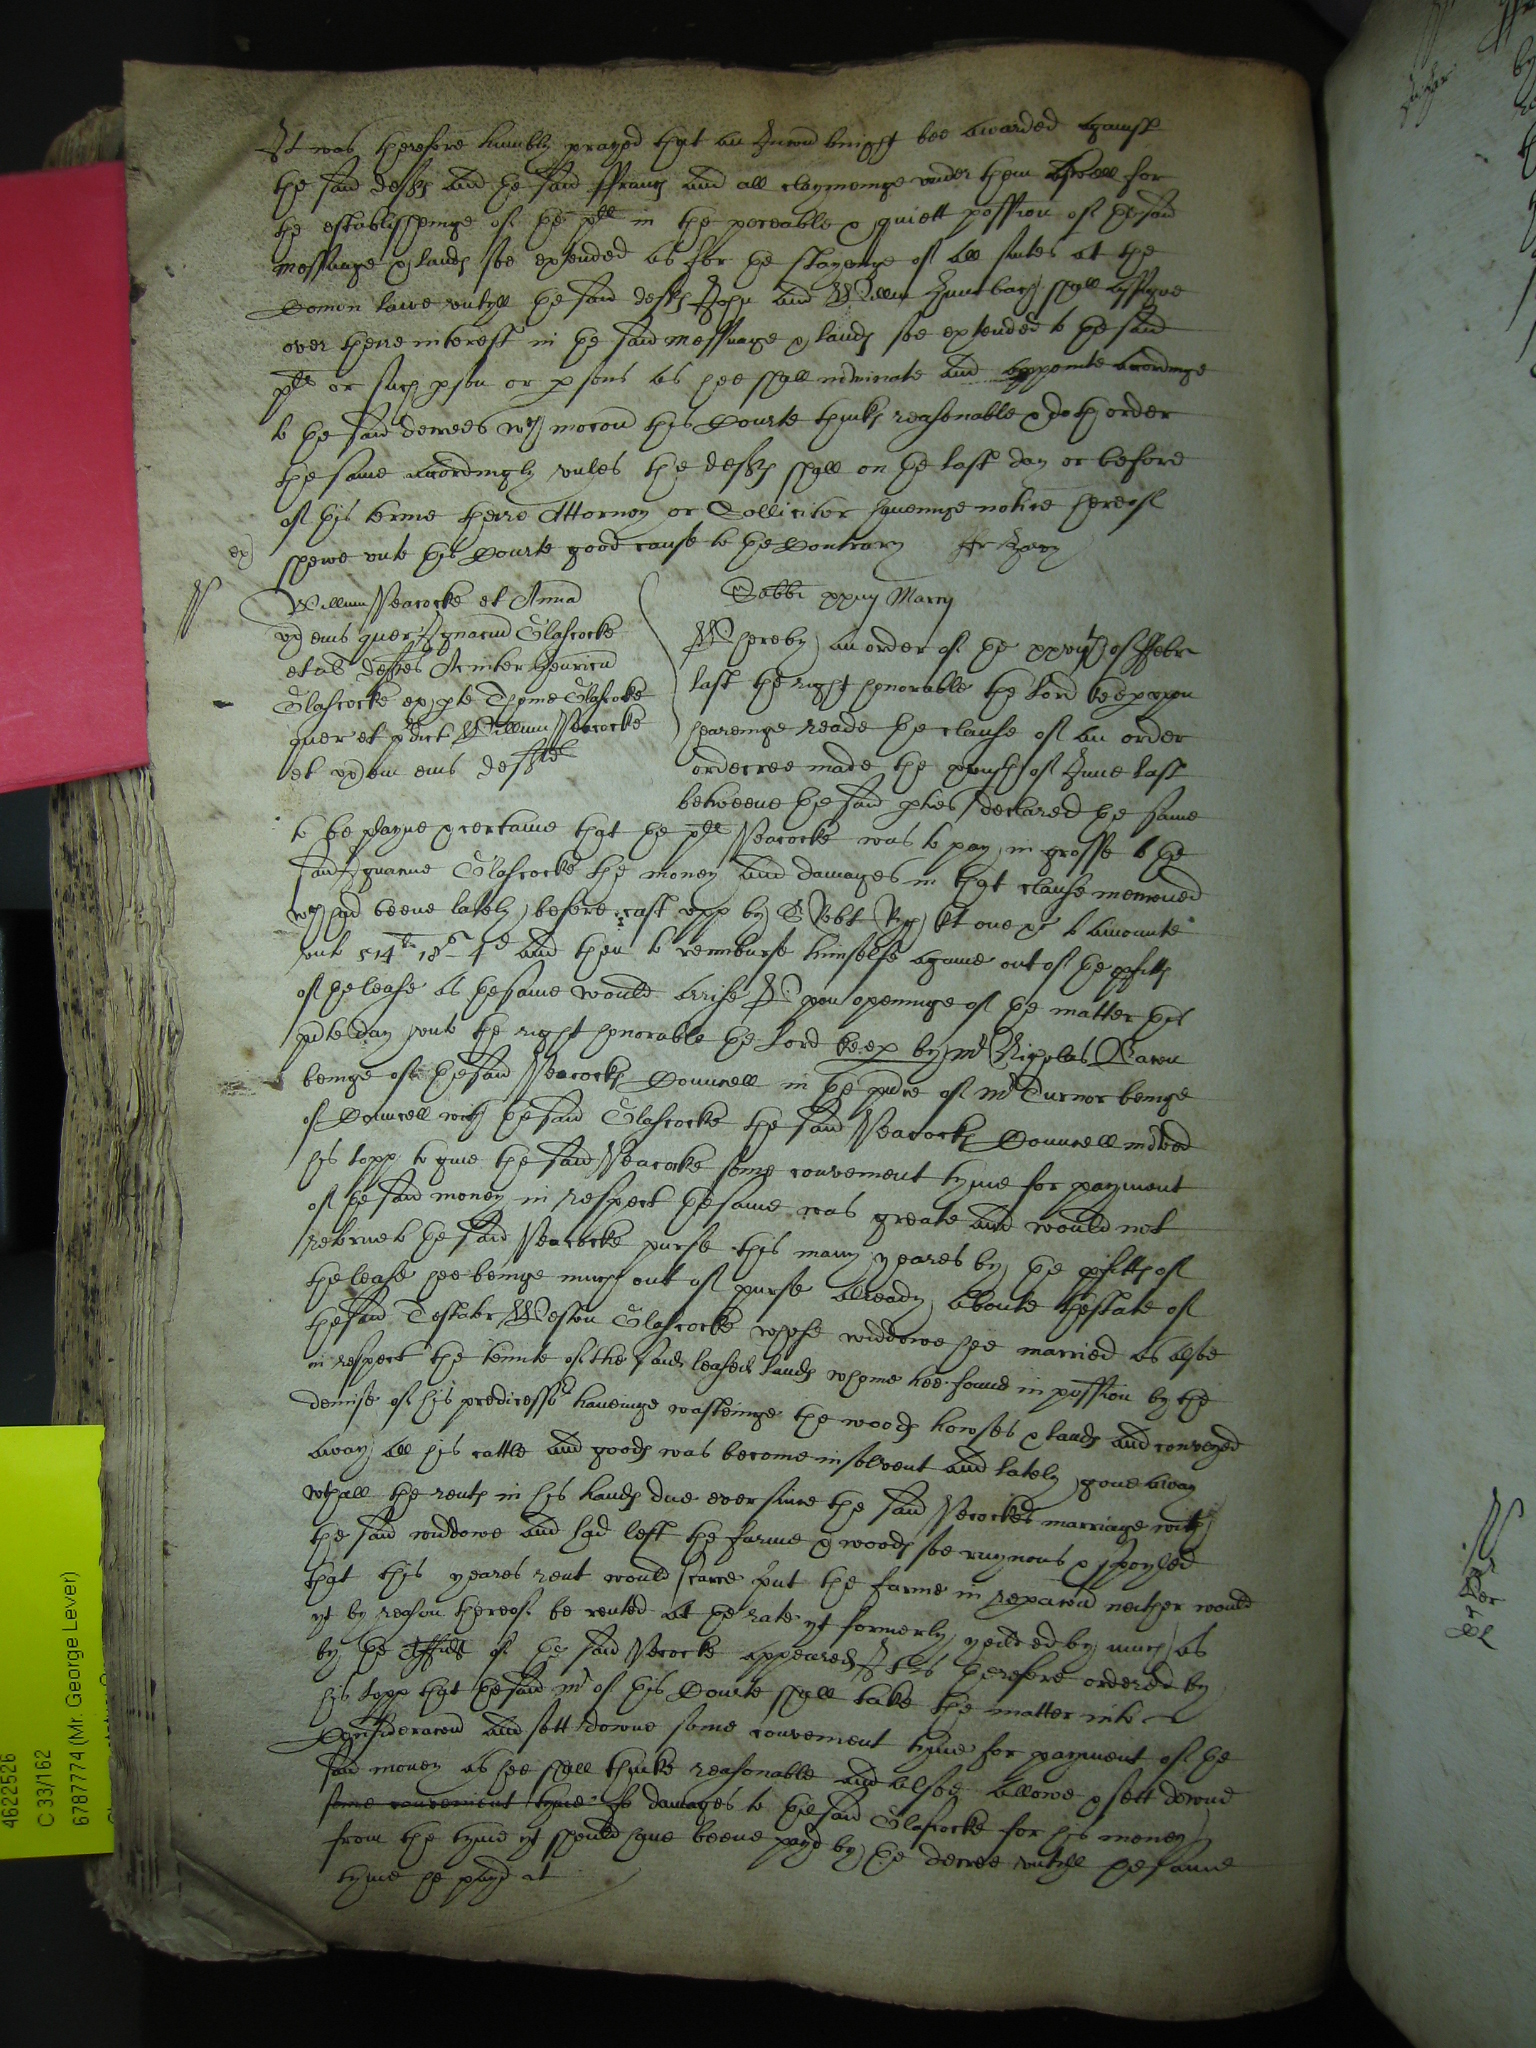 It was therefore humbly prayed that an Iniunccion might bee awarded against
the said defts and the said Francis and all claymeinge under them aswell for
the establisheinge of the plt in the peceable & quiett possion of the said
messuage & lands soe extended as for the stayeinge of all suites at the
Comon lawe untyll the said defts John and Willm shall assigne
over theire interest in the said messuage & lands soe extended to the said
plt or such pson or psons as hee shall nominate and appointe accordinge
to the said decrees wch mocon this Courte thinks reasonable & doth order
the same accordingly unles the defts shall on the last day or before
of this terme theire Attorney or Solliciter haveinge notice hereof
shewe unto this Courte good cause to the Contrary
ex
Willum Peacocke et Anna
ux eius quer Ignaciu Glascocke
et al deftes Ac inter Henricu
Glascocke ex pte Thome Glascocke
quer et pdict Willum Peacocke
et uxem eius defte
Sabbi Marcij
Whereby an order of the of Febr
last the right honorable the Lord keep upon
heareinge reade the clause of an order
or decree made the of June last
betweene the said pties declared the same
to be playne & certaine that the plt Peacocke was to pay in grosse to the
said Ignacius Glascocke the money and damages in that clause mencioned
wch had beene lately before cast upp by Sr Robt Rich kt one &c to amounte
unto 514li 18s 4d and then to reimburse himselfe againe out of the pfitts
of the lease as the same would arrise Upon openinge of the matter this
pnte day unto the right honorable the Lord keep by mr Nicholas Bacon
beinge of the said Peacocks Councell in the pnce of mr Turnor beinge
of Councell with the said Glascocke the said Peacocks Councell moved
his lopp to give the said Peacocke some convenient tyme for payment
of the said money in respect the same was greate and would not
retorne to the said Peacocke purse this many yeares by the pfitts of
the lease hee beinge much out of purse already aboute thestate of
the said Testator Weston Glascocke whose widdowe hee married as alsoe
in respect the tennte of the said leased lands whome hee found in possion by the
demise of his predicessor haveinge wasteinge the woods howses & lands and conveyed
away all his cattle and goods was become insolvent and lately gone away
wth all the rents in his hands due ever since the said Pecockes marriage with
the said widdowe and had left the farme & woods soe ruynous & spoyled
that this yeares rent would scarce put the farme in reparacon neither would
yt by reason thereof be rented at the rate yt formerly yeilded by much as
by the Affidt of the said Pecocke appeared It is therefore ordered by
his lopp that the said mr of this Courte shall take the matter into
Consideracon and sett downe some convenient tyme for payment of the
said money as hee shall thinke reasonable and alsoe allowe & sett downe
some convenient tyme fo damages to the said Glascocke for his money
from the tyme yt should have beene payd by the decree untyll the same
tyme he payd it
4622526
C 33/162
6787774 (Mr. George Lever)